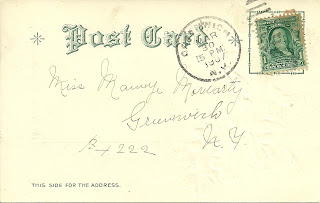 Post Card
GREENWICH
MAR
30
15 PM
1907
N.Y.
Miss Mamye Moriarty
Greenwich
N.Y.
B+ 222
THIS SIDE FOR THE ADDRESS.